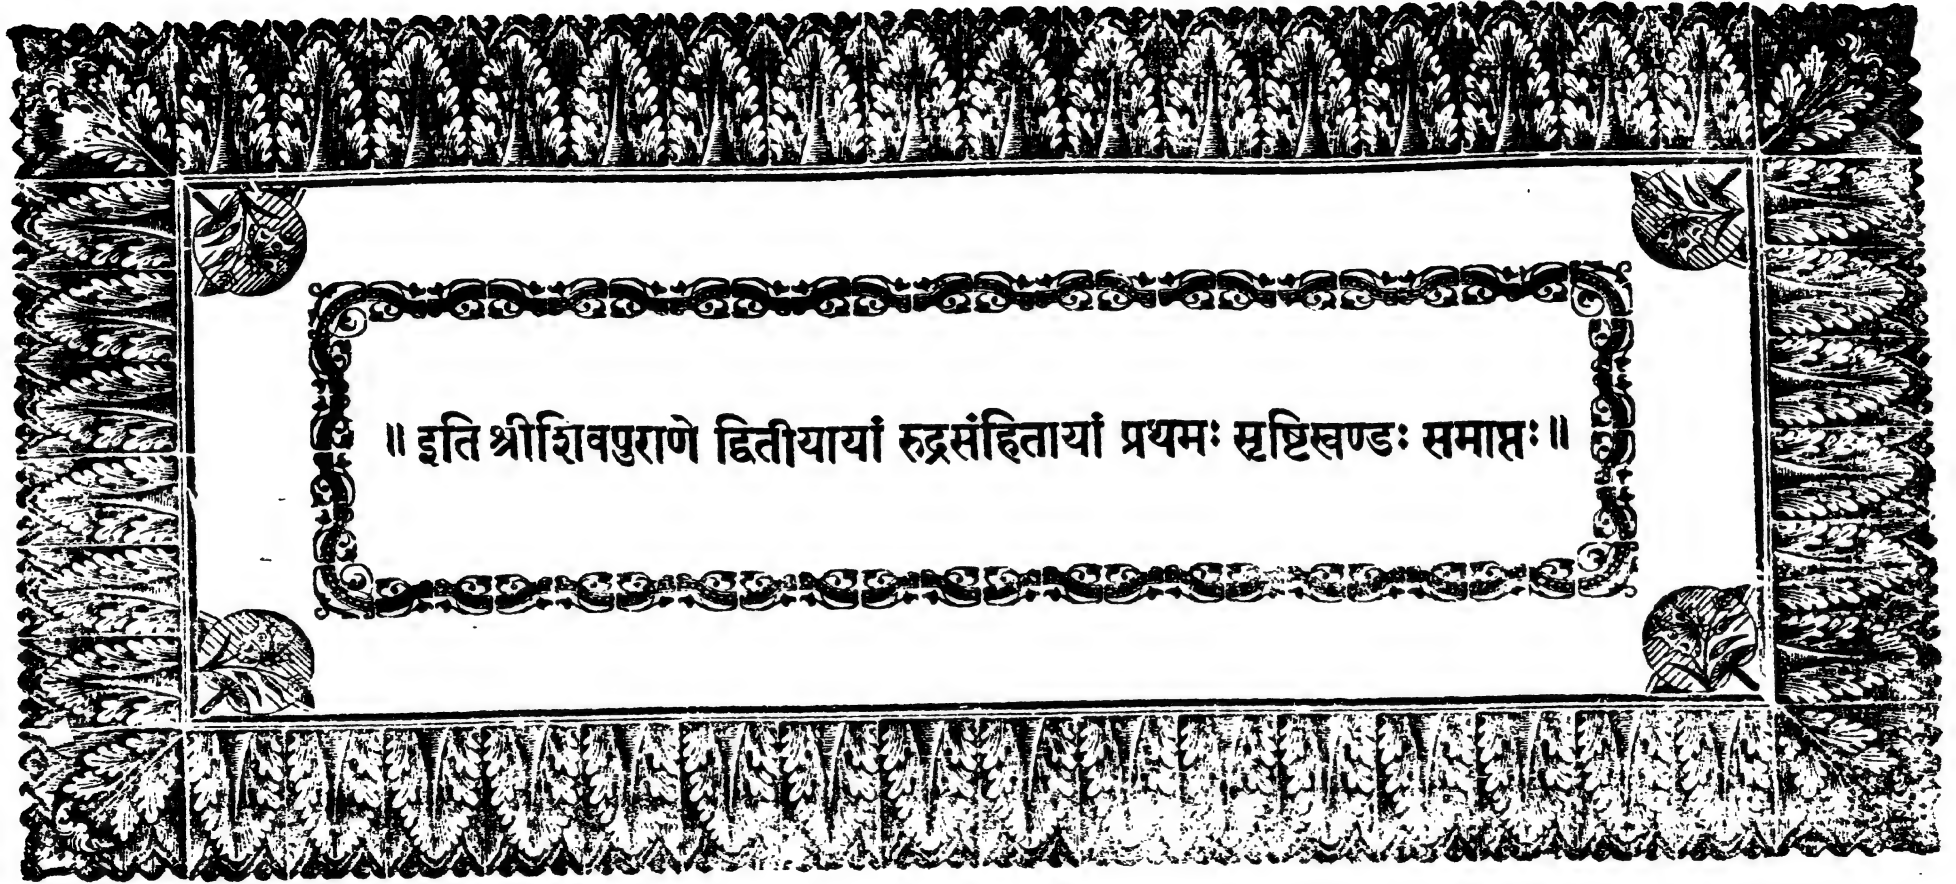 ॥ इति श्रीशिवपुराणे द्वितीयायां रुद्रसंहितायां प्रथमः सृष्टिखण्डः समाप्तः ॥